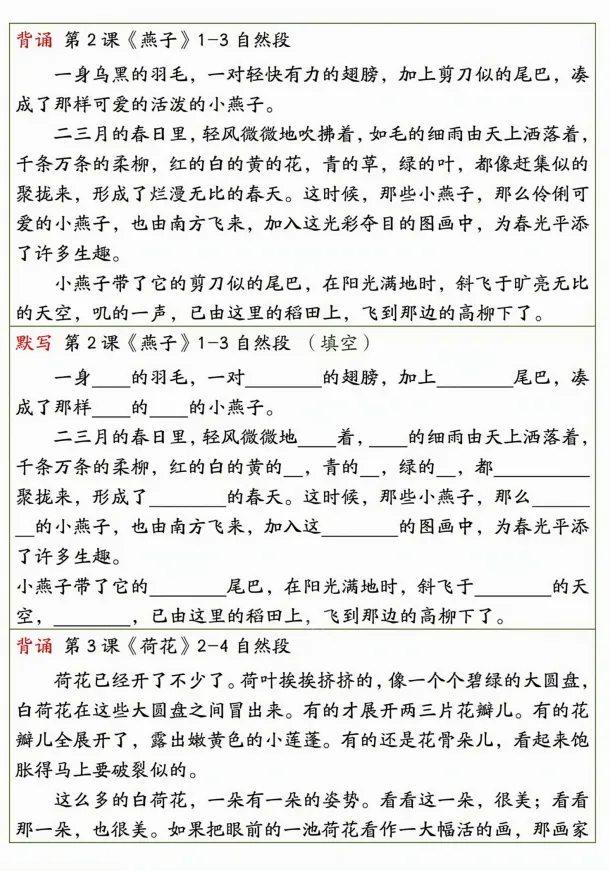 背诵 第2课《燕子》1-3自然段
一身乌黑的羽毛，一对轻快有力的翅膀，加上剪刀似的尾巴，凑
成了那样可爱的活泼的小燕子。
二三月的春日里，轻风微微地吹拂着，如毛的细雨由天上洒落着，
千条万条的柔柳，红的白的黄的花，青的草，绿的叶，都像赶集似的
聚拢来，形成了烂漫无比的春天。这时候，那些小燕子，那么伶俐可
爱的小燕子，也由南方飞来，加入这光彩夺目的图画中，为春光平添
了许多生趣。
小燕子带了它的剪刀似的尾巴，在阳光满地时，斜飞于旷亮无比
的天空，叽的一声，已由这里的稻田上，飞到那边的高柳下了。
默写 第2课《燕子》1-3自然段 （填空）
一身____的羽毛，一对________的翅膀，加上________尾巴，凑
成了那样____的____的小燕子。
二三月的春日里，轻风微微地____着，____的细雨由天上洒落着，
千条万条的柔柳，红的白的黄的__，青的__，绿的__，都__________
聚拢来，形成了________的春天。这时候，那些小燕子，那么______
__的小燕子，也由南方飞来，加入这________的图画中，为春光平添
了许多生趣。
小燕子带了它的________尾巴，在阳光满地时，斜飞于________的天
空，________，已由这里的稻田上，飞到那边的高柳下了。
背诵 第3课《荷花》2-4自然段
荷花已经开了不少了。荷叶挨挨挤挤的，像一个个碧绿的大圆盘，
白荷花在这些大圆盘之间冒出来。有的才展开两三片花瓣儿。有的花
瓣儿全展开了，露出嫩黄色的小莲蓬。有的还是花骨朵儿，看起来饱
胀得马上要破裂似的。
这么多的白荷花，一朵有一朵的姿势。看看这一朵，很美；看看
那一朵，也很美。如果把眼前的一池荷花看作一大幅活的画，那画家